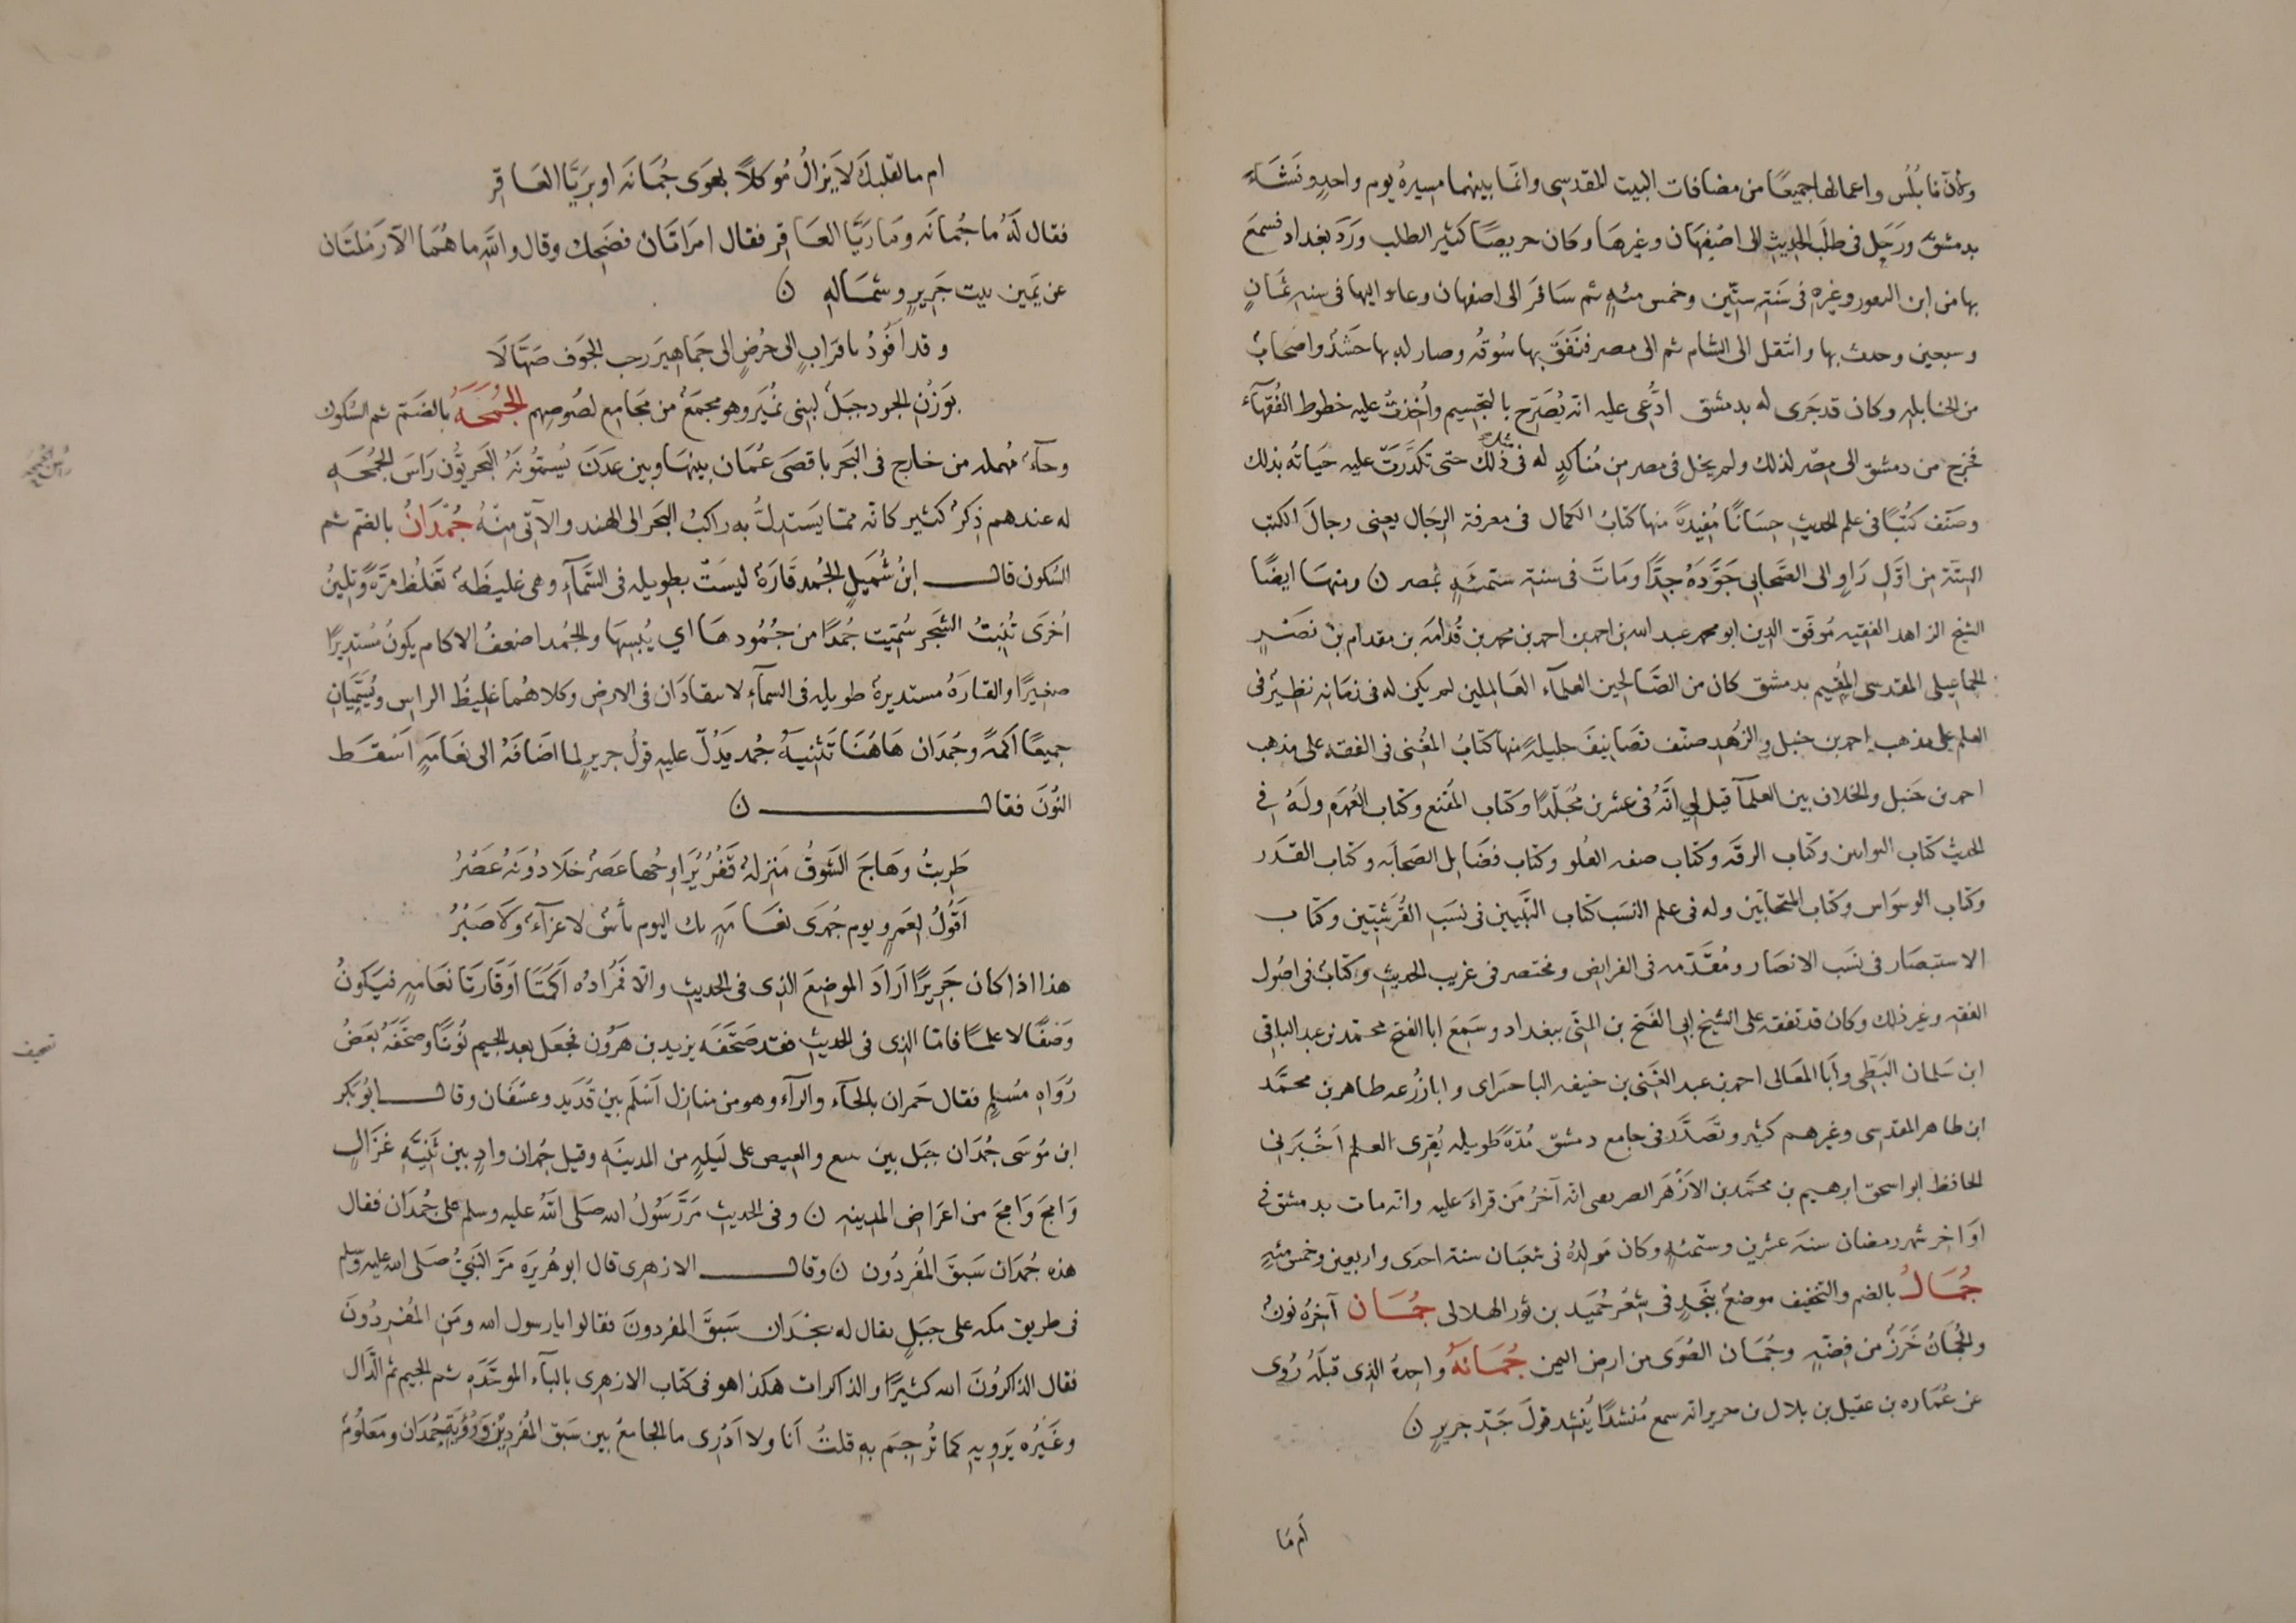 ولان نابُلُس واعمالها جميعًا من مضافات البيت المقدسى وانما بينهما مسيرة يوم واحدٍ ونَشَاءَ
بدمشق ورَحَل فى طلَب الحديث الى اصْفهَان وغيرها وكان حريصًا كثير الطلب وَرَدَ بغداد فسمعَ
بها من ابن النعور وغيره فى سَنة ستّين وخمس مئةٍ ثم سَافرَ الى اصفهان وعاد اليها فى سنة ثمَانٍ
وسبعين وحدث بها وانتقل الى الشام ثم الى مصر فنَفَقَ بها سُوقُه وصار له بها حَشدٌ واصْحابٌ
من الحنابلة وكان قد جَرى له بدمشق ادُّعى عليه انه يُصَرّح بالتجسيم واُخِذتْ عليه خطوط الفُقهآء
فخرج من دمشق الى مصر لذلك ولم يخل فى مصر من مُناكدٍ له فى مثل ذلك حتى تكدَّرَتْ عليه حَيَاتُه بذلك
وصَنّف كتُبًا فى علم الحديث حِسَانًا مُفيدةً منها كتابُ الكمال فى معرفة الرجَال يعنى رجالَ الكتب
الستّة من اوّل رَاوٍ الى الصَّحابى جَوَّدَهُ جدًّا ومَاتَ فى سنة ستمئةٍ بمصر ن ومنهَا ايضًا
الشيخ الزاهد الفقيه مُوفَق الدين ابو محمد عبد الله بن احمد بن محمد بن قُدامَه بن مقدام بن نصْرٍ
الجماعيلى المقدسى المُقيم بدمشق كان من الصَّالحين العلمآء العاملين لم يكن له فى زمَانه نظيرٌ فى
العلم على مذهب احمد بن حنبل والزُهد صنّف تصَانيفَ جليلةً منها كتابُ المُغنى فى الفقه على مذهب
احمد بن حَنبل والخلاف بين العلمآ قيل لِي انّهُ فى عشرين مُجلّدًا وكتاب المُقنع وكتاب العُمدة ولَهُ فِى
الحديث كتاب التوابين وكتاب الرقه وكتاب صفه العُلو وكتاب فضَايل الصَحابه وكتاب القدَر
وكتاب الوسوَاس وكتاب المتحابّين وله فى علم النسَب كتاب التّبيين فى نسَب القُرَشيّين وكتاب
الاستبصَار فى نسَب الانصَار ومُقدّمه فى الفرايض ومختصر فى غريب الحديث وكتابٌ فى اصُول
الفقه وغير ذلك وكان قد تفقه على الشيخ ابى الفَتح بن المنّى ببغداد وسَمِعَ ابا الفتح محمّد بن عبد الباقى
ابن سَلمان البَطّى وابَا المعَالى احمد بن عبد الغَنى بن حنيفه الباحسراى وابا زُرعه طاهر بن محمَّد
ابن طاهر المقدسى وغيرهم كثير وتصَدَّر فى جامع دمشق مُدّةً طويله يُقرى العلم اَخبَرَنى
الحافظ ابو اسحق ابرهيم بن محمَّد بن الازْهَر الصريفى انه آخرُ مَن قراءَ عليه وانه مات بدمشق فى
اوَاخر شهر رمضان سنة عشرين وستمئةٍ وكان مَولدُهُ فى شعبَان سنة احدَى واربعين وخمس مئةٍ
جُمَال بالضم والتخفيف موضعٌ بنَجدٍ فى شِعْر حُميَد بن ثور الهلالى جُمَان آخرُه نونٌ
والجُمَانُ خَرَزٌ من فِضّةٍ وجُمَان الصُوَى من ارض اليمن جُمَانةُ واحدةُ الذى قبلَهُ رُوى
عن عُمَاره بن عقيل بن بلال بن جرير انه سمع مُنشدًا يُنشد قولَ جَدّ جريرٍ ن
اَم مَا
ام مالقلبكَ لاَ يزالُ مُوكلاً بهوَى جُمَانَة او بريَّا العَاقِرِ
فقال لَهُ ما جُمانَه ومَا رَيَّا العَاقر فقال امرَاتَان فضَحِك وقال واللهِ ما هُمَا الاّ رَملتَان
عن يَمين بيت جَريرٍ وشمَالهِ ن
وقد اقُودُ باقرَابٍ الى حُرُضٍ الى جَماهيرَ رحب الجوَف صَهَّالَا
بوَزن الجود جبَلٌ لبنى نُميرَ وهو مجمَعٌ من مجَامِع لصُوصِهم الجُمحَةُ بالضَم ثم السُكون
وحآء مُهمله سن خارج فى البَحر باقصَى عُمَان بينهَا وبين عدَن يُسمُّونَهُ البَحريُّون رَاسَ الجُمحَهِ
له عندهم ذِكرٌ كثير كانه مما يَستدلُّ به راكبُ البَحر الى الهند والآتى منهُ جُمْدَانُ بالضم ثم
السُكون قال ابنُ شُمَيلٍ الجُمد قَارَةٌ ليسَتْ بطويله فى السَّمآءِ وهى غليظَةٌ تَغلُظ مَرَّةً وتلينُ
اُخرَى تُنبتُ الشجَر سُمّيت جُمدًا من جُمُودهَا اي يُبسِهَا والجُمد اضعفُ الاكام يكونُ مُستديرًا
صغيرًا والقارَةُ مستديرةٌ طويله فى السمآءِ لا ينقادَان فى الارض وكلاهُما غليظُ الراس ويُسمَّيَانِ
جميعًا اَكمةً وجُمدَان هَاهُنَا تَثنيةُ جُمد يَدُلّ عليهِ قولُ جريرٍ لما اضَافَهُ الى نعَامَهِ اَسْقَط
النُونَ فقال ن
طَربتُ وهَاجَ الشَوقُ مَنزلةٌ قَفرُ تُرَاوحُها عَصرٌ خلَا دُونَهُ عَصْرُ
اَقولُ لِعَمرٍو يوم جُمدَى نعَامَهٍ بك اليوم بأسٌ لا عزآءٌ وَلَا صَبْرُ
هذا اذا كان جَريرًا ارَادَ الموضِعَ الذى فى الحديث والّا فمُرادُه اَكمَتَا اوَقارَتَا نعَامةٍ فيَكونُ
وَصْفًا لا علمًا فامَّا الذى فى الحديث فقد صَحَّفَه يزيد بن هَرُون فجَعل بعد الجيم نُونًا وصَحَّفَهُ بَعضُ
رُوَاهِ مُسلمٍ فقال حَمران بالحَآء والرآء وهو من منازل اَسْلَم بين قُدَيد وعسْفَان وقال ابُو بَكر
ابن مُوسَى جُمدَان جبَل بين ينبع والعيص على لَيلةٍ من المدينَهِ وقيل جُمدان وادٍ بين ثَنيَّهِ غزَال
وَامجَ وَامجَ من اعرَاض المدينه ن وفى الحديث مَرَّ رَسُولُ الله صَلى اللهُ عليه وسلم على جُمدَان فقال
هذه جُمدَان سَبقَ المُفردُون ن وقال الازهرى قال ابو هُريرَة مَرّ النَبيُّ صَلى الله عليه وسلم
فى طريق مكه على جَبَلٍ يقال له بجدَان سَبقَ المفردونَ فقالوا يا رسول الله ومَنِ المُفردُونَ
فقال الذاكرُونَ الله كثيرًا والذاكرات هكذا هو فى كتاب الازهرى بالبآء الموحَّدَهِ ثم الجيم ثم الدَّال
وغَيُره يَرويهِ كما تُرجِمَ بهِ قلتُ انَا ولا ادَرى ما الجامعُ بين سَبق المُفردينْ ورُؤيَةِ جُمدَان ومَعلُومٌ
راس الجمحه
تصحيف